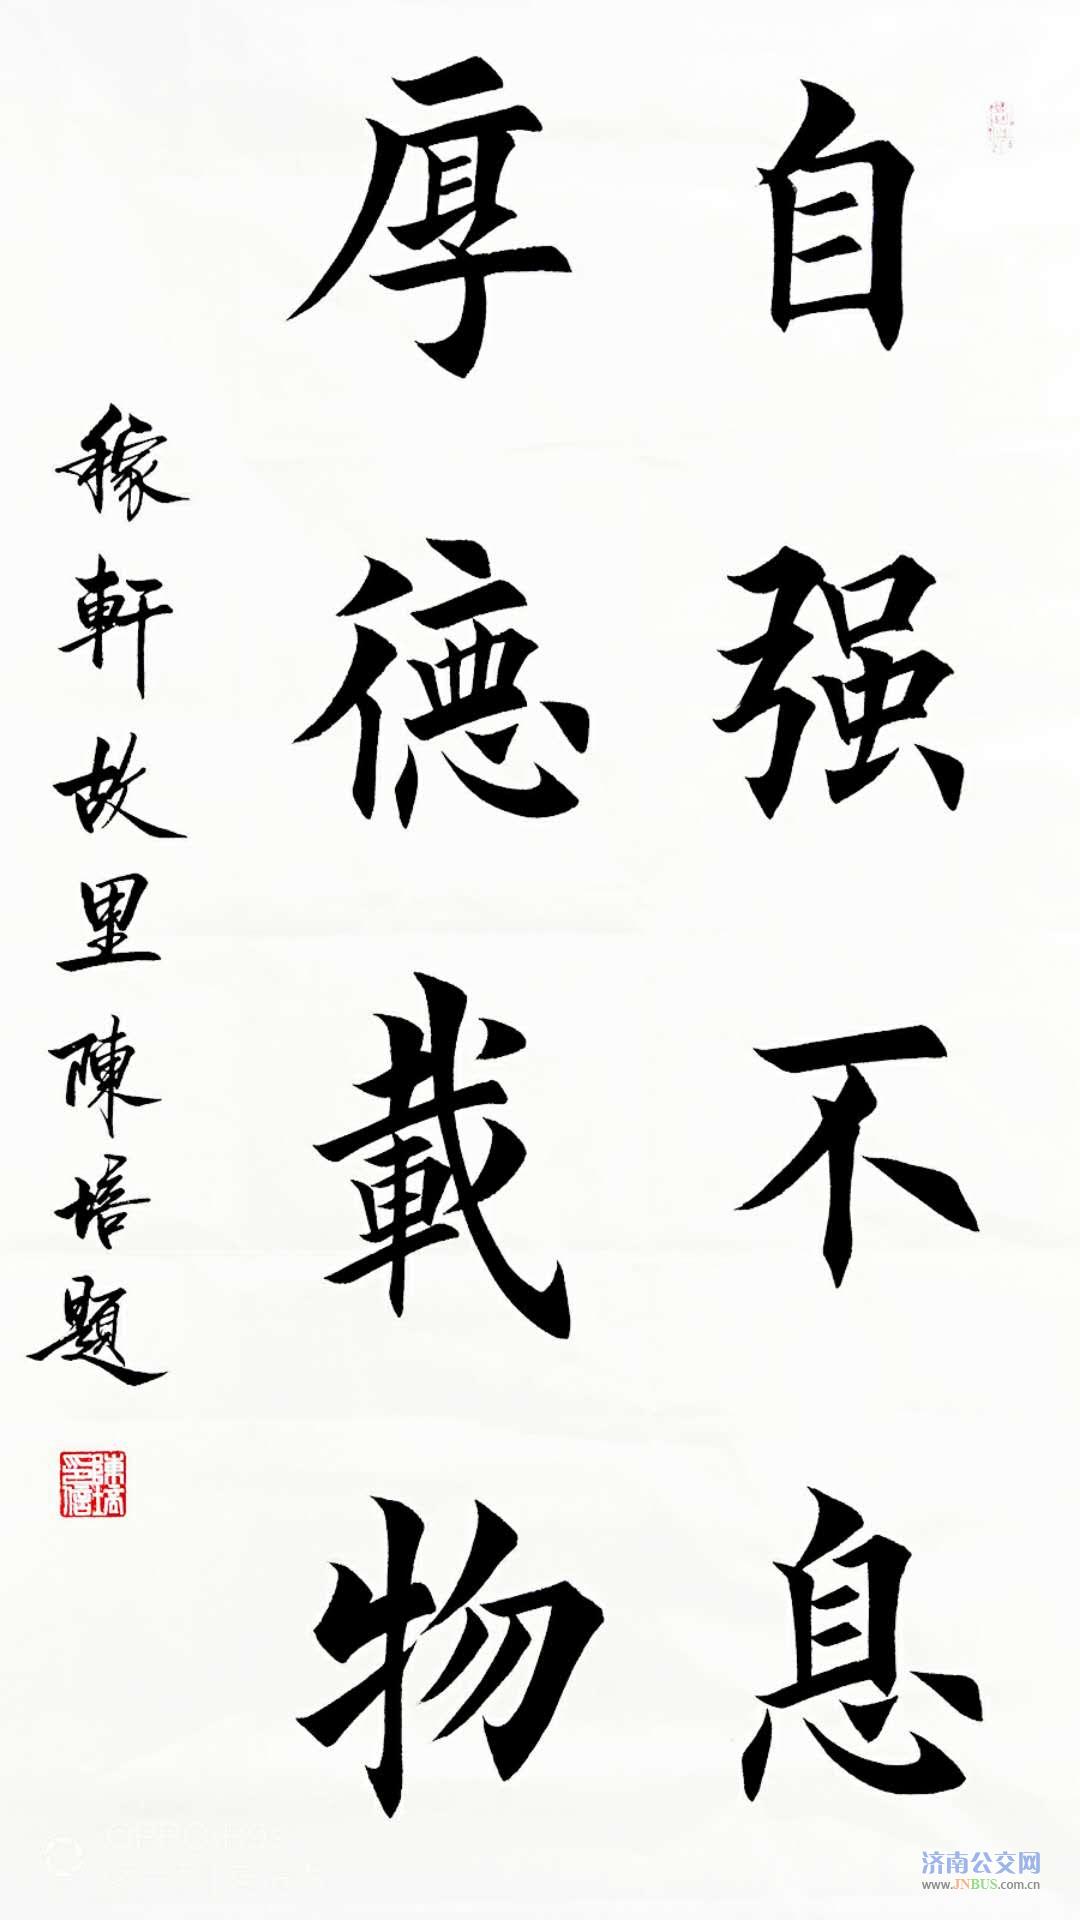 自强不息
厚德載物
稼軒故里陳培題
济南公交网
www.JNBUS.com.cn